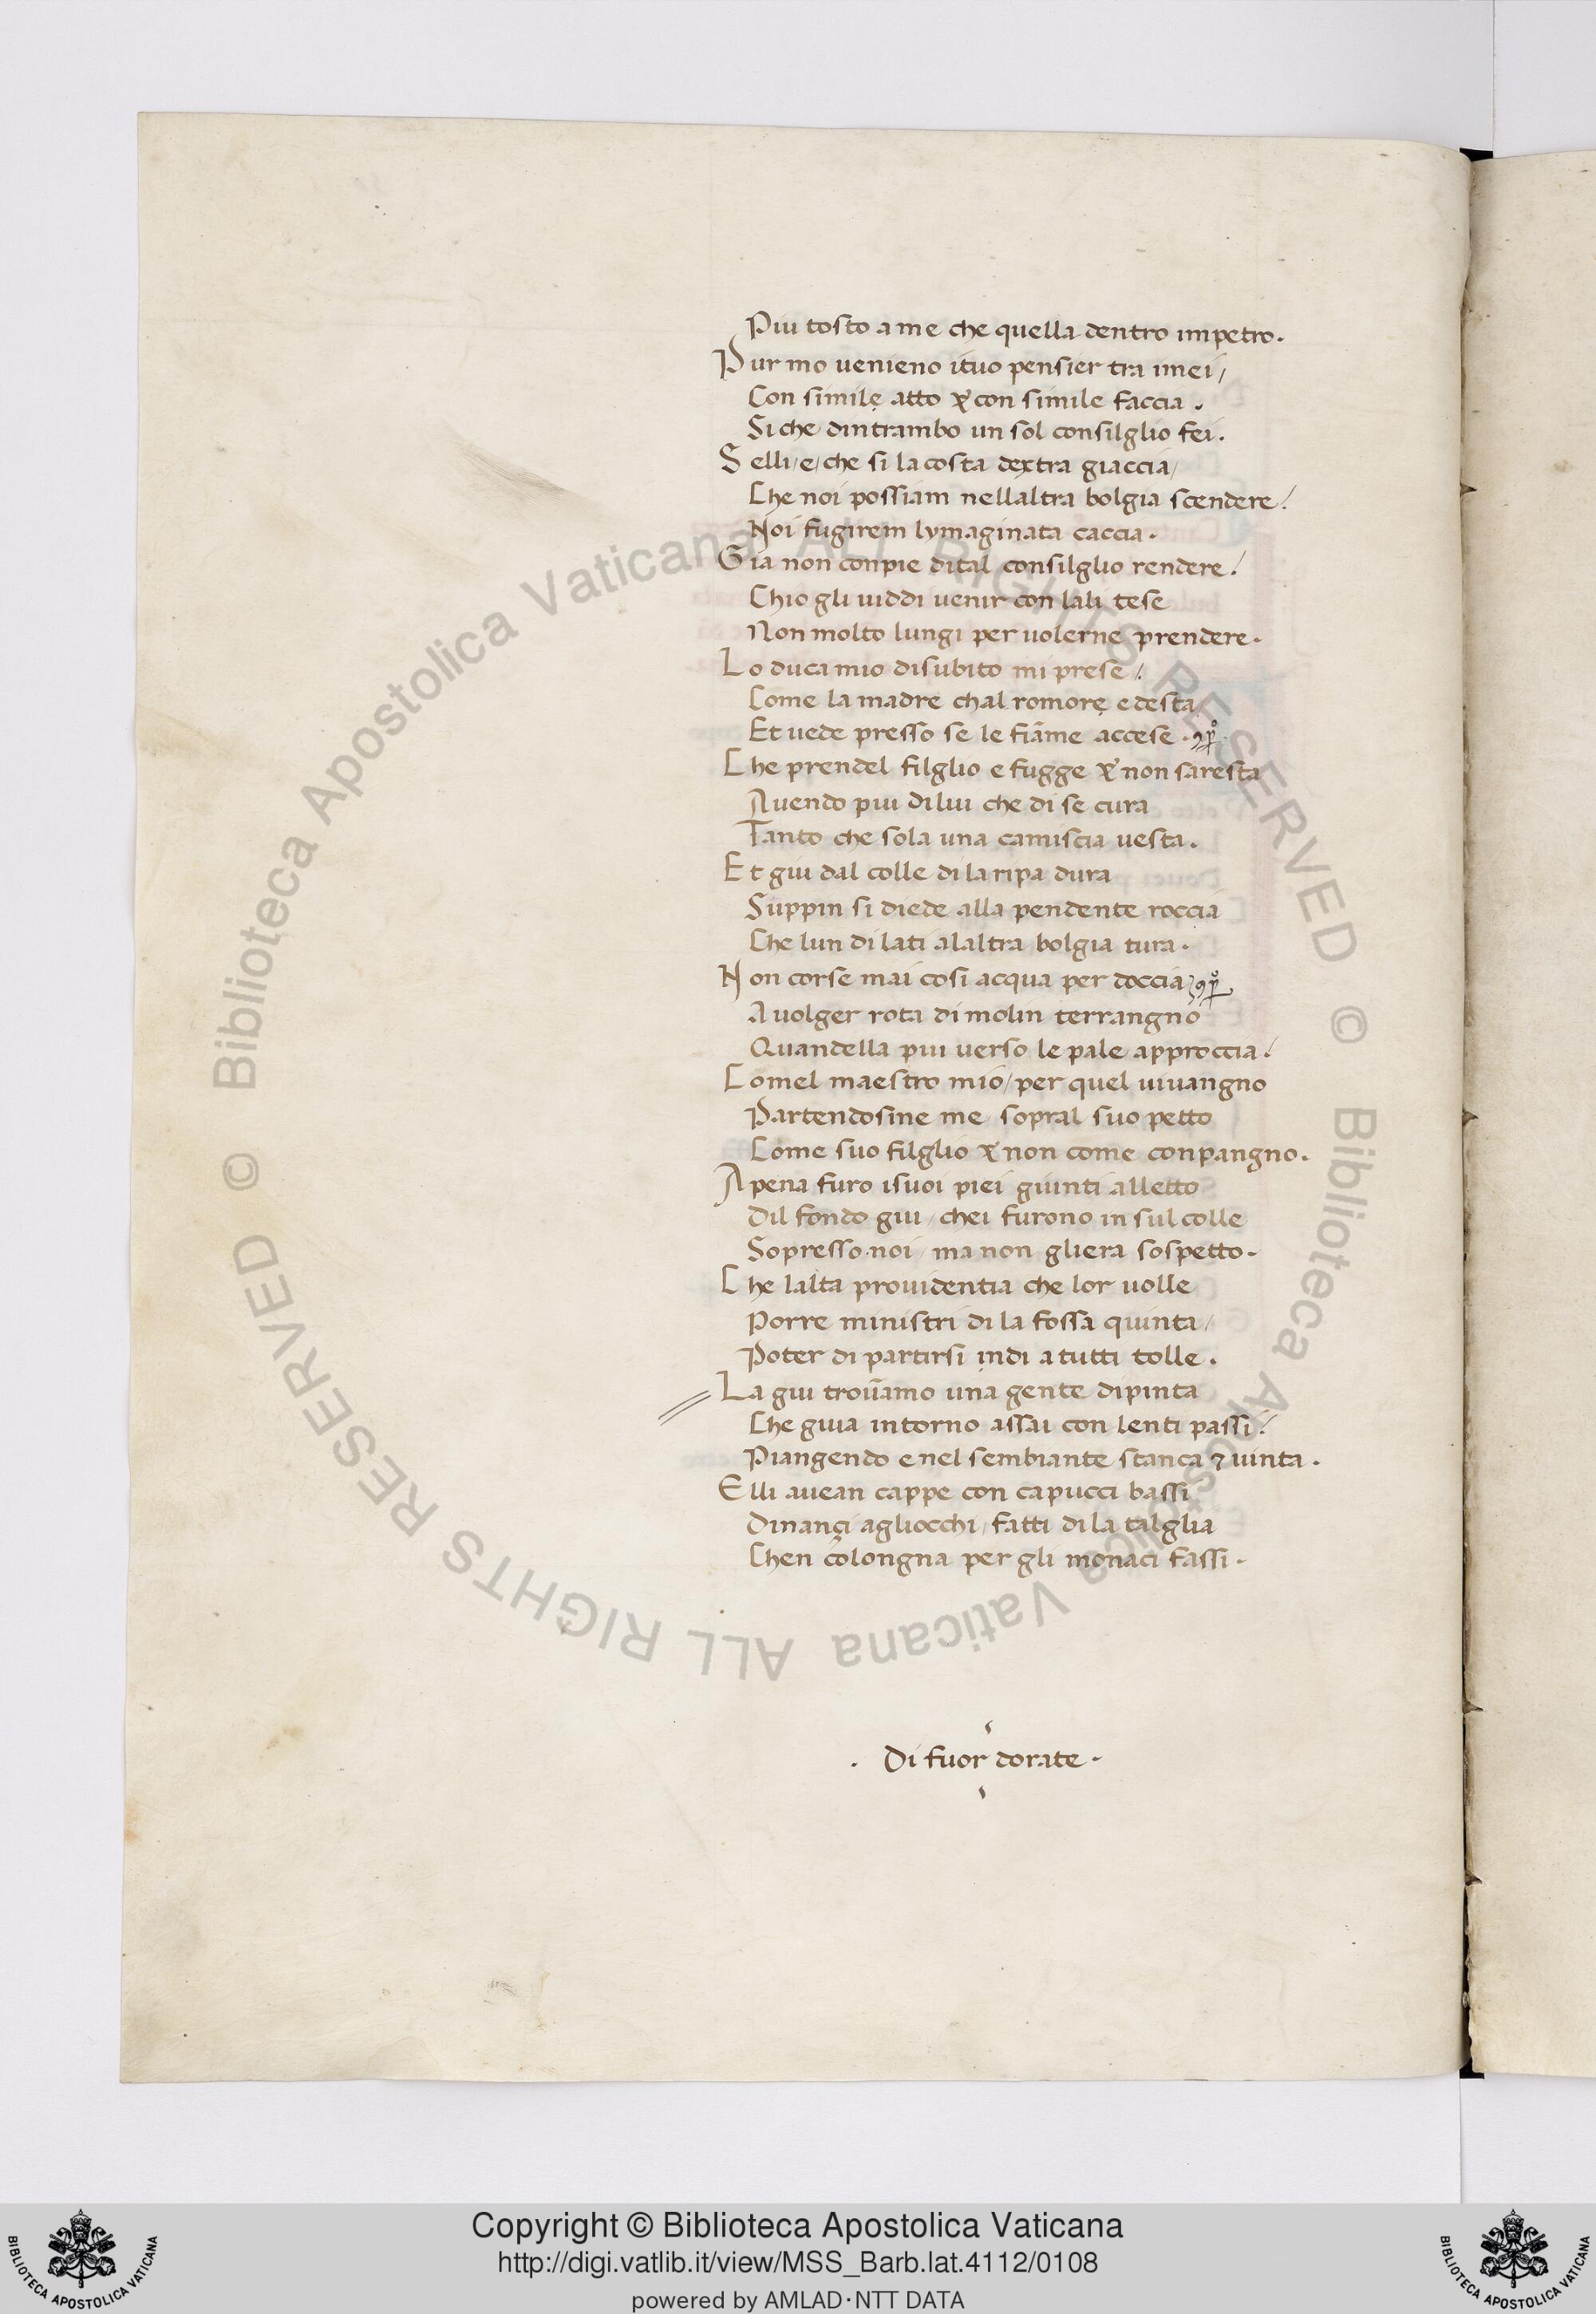 Piu tosto a me che quella dentro impetro.
Pur mo uenieno ituo pensier tra imei/
Con simile atto & con simile faccia.
Si che dintrambo un sol consilglio fei.
Selli/e/che si la costa dextra giaccia/
Che noi possiam nellaltra bolgia scendere/
Noi fugirem lymaginata caccia.
Gia non conpie dital consilglio rendere/
Chio gli uiddi uenir con lali tese
Non molto lungi per uolerne prendere.
Lo duca mio disubito mi prese/
Come la madre chal romore e desta
Et uede presso se le fiãme accese.
Che prendel filglio e fugge & non saresta
Auendo piu dilui che di se cura
Tanto che sola una camiscia uesta.
Et giu dal colle dila ripa dura
Suppin si diede alla pendente roccia
Che lun di lati alaltra bolgia tura.
Non corse mai cosi acqua per doccia
A uolger rota di molin terrangno
Quandella piu uerso le pale approccia/
Comel maestro mio/per quel uiuangno
Partendosine me sopral suo petto
Come suo filglio & non come conpangno.
Apena furo isuoi piei giunti alletto
Dil fondo giu/chei furono in sul colle
Sopresso noi/ma non gliera sospetto.
Che lalta prouidentia che lor uolle
Porre ministri di la fossa quinta/
Poter di partirsi indi a tutti tolle.
La giu troũamo una gente dipinta
Che giua intorno assai con lenti passi/
Piangendo e nel sembiante stanca 7 uinta.
Elli auean cappe con capucci bassi
Dinançi agliocchi/fatti di la talglia
Chen colongna per gli monaci fassi.
. Di fuor dorate.
© Biblioteca Apostolica Vaticana ALL RIGHTS RESERVED © Biblioteca Apostolica Vaticana ALL RIGHTS RESERVED
Copyright © Biblioteca Apostolica Vaticana
http://digi.vatlib.it/view/MSS_Barb.lat.4112/0108
powered by AMLAD·NTT DATA
BIBLIOTECA APOSTOLICA VATICANA
BIBLIOTECA APOSTOLICA VATICANA